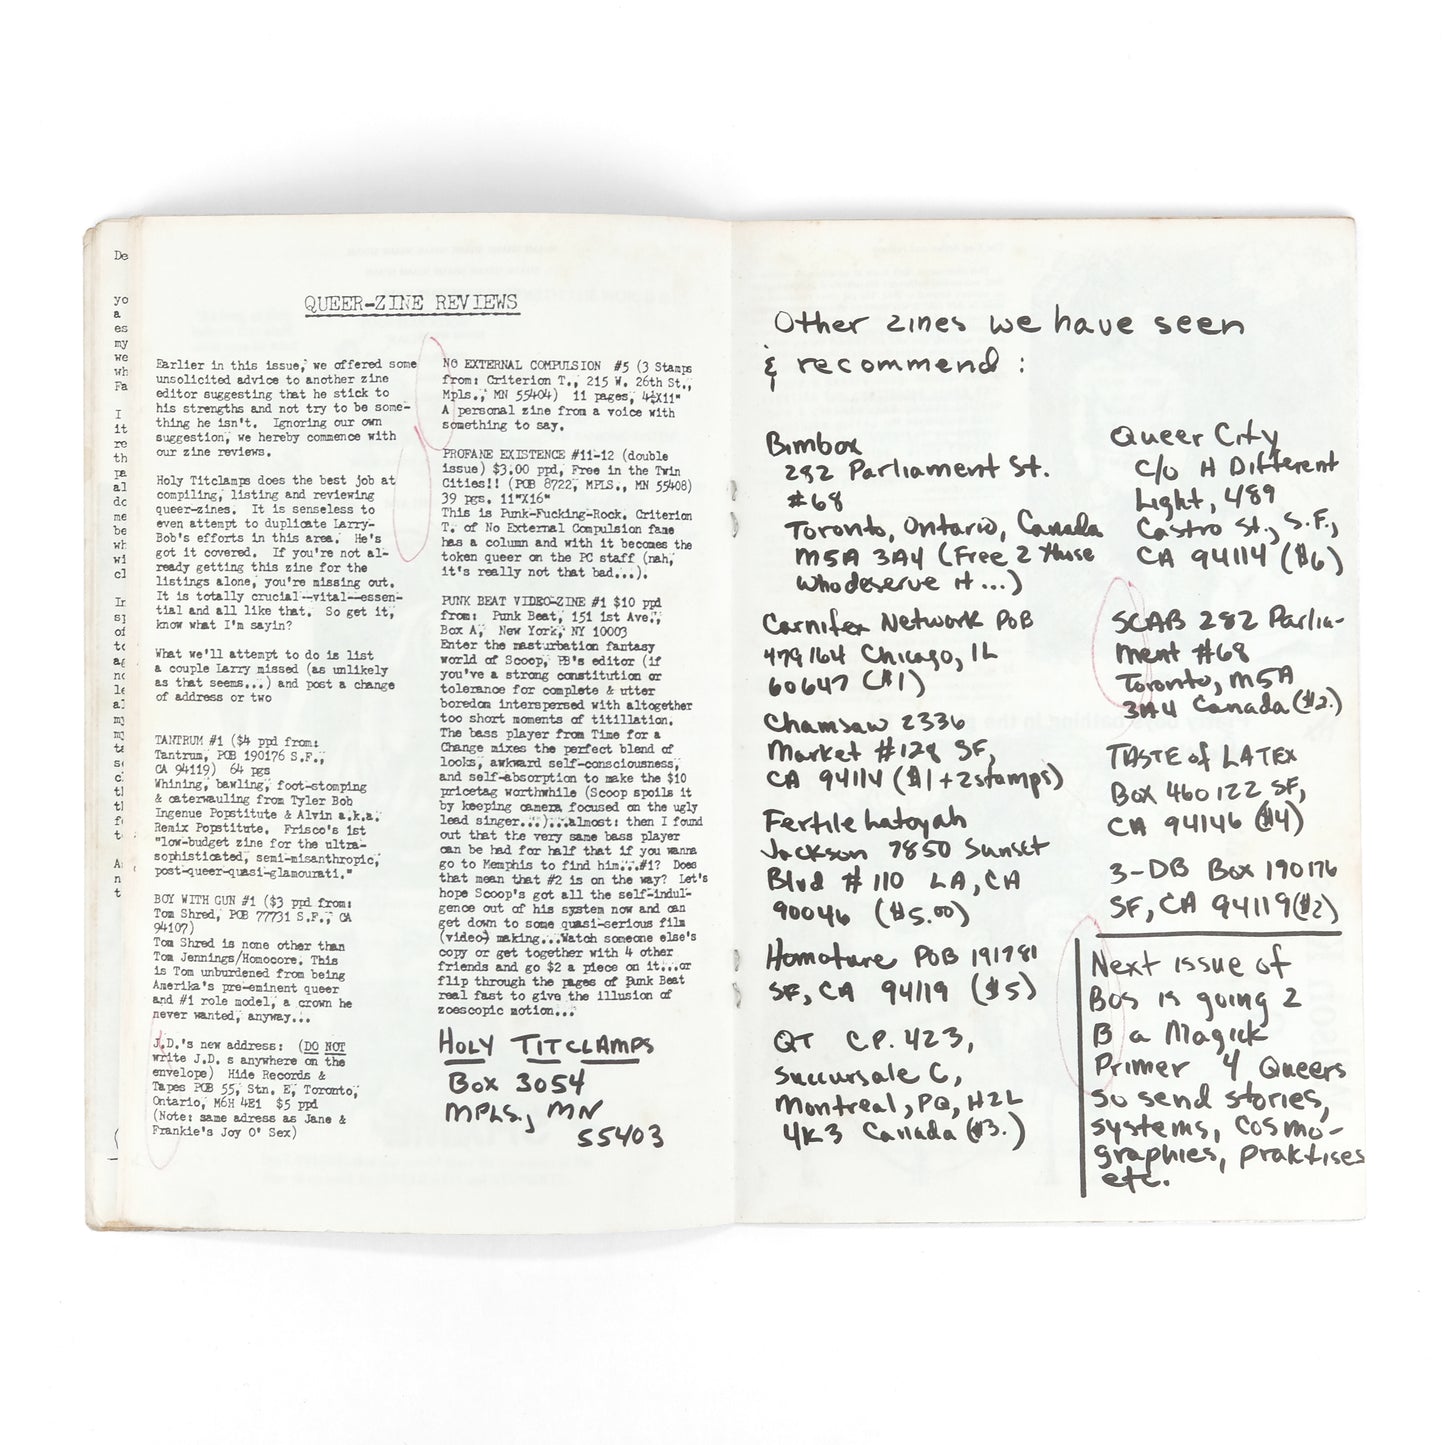 De
yo
a
es
my
we
wh
Fa
I
it
re
th
pa
al
do
me
be
wh
wi
cl
QUEER-ZINE REVIEWS
Earlier in this issue, we offered some
unsolicited advice to another zine
editor suggesting that he stick to
his strengths and not try to be some-
thing he isn't. Ignoring our own
suggestion, we hereby commence with
our zine reviews.
Holy Titclamps does the best job at
compiling, listing and reviewing
queer-zines. It is senseless to
even attempt to duplicate Larry-
Bob's efforts in this area. He's
got it covered. If you're not al-
ready getting this zine for the
listings alone, you're missing out.
It is totally crucial--vital--essen-
tial and all like that. So get it,
know what I'm sayin?
What we'll attempt to do is list
a couple Larry missed (as unlikely
as that seems...) and post a change
of address or two
TANTRUM #1 ($4 ppd from:
Tantrum, POB 190176 S.F.,
CA 94119) 64 pgs
Whining, bawling, foot-stomping
& caterwauling from Tyler Bob
Ingenue Popstitute & Alvin a.k.a.
Remix Popstitute. Frisco's 1st
"low-budget zine for the ultra-
sophisticated, semi-misanthropic,
post-queer-quasi-glamourati."
BOY WITH GUN #1 ($3 ppd from:
Tom Shred, POB 77731 S.F., CA
94107)
Tom Shred is none other than
Tom Jennings/Homocore. This
is Tom unburdened from being
Amerika's pre-eminent queer
and #1 role model, a crown he
never wanted, anyway...
J.D.'s new address: (DO NOT
write J.D. s anywhere on the
envelope) Hide Records &
Tapes POB 55, Stn. E, Toronto,
Ontario, M6H 4E1 $5 ppd
(Note: same adress as Jane &
Frankie's Joy O' Sex)
NO EXTERNAL COMPULSION #5 (3 Stamps
from: Criterion T., 215 W. 26th St.,
Mpls., MN 55404) 11 pages, 4¼X11"
A personal zine from a voice with
something to say.
PROFANE EXISTENCE #11-12 (double
issue) $3.00 ppd, Free in the Twin
Cities!! (POB 8722, MPLS., MN 55408)
39 pgs. 11"X16"
This is Punk-Fucking-Rock. Criterion
T. of No External Compulsion fame
has a column and with it becomes the
token queer on the PC staff (nah,
it's really not that bad...).
PUNK BEAT VIDEO-ZINE #1 $10 ppd
from: Punk Beat, 151 1st Ave.,
Box A, New York, NY 10003
Enter the masturbation fantasy
world of Scoop, PB's editor (if
you've a strong constitution or
tolerance for complete & utter
boredom interspersed with altogether
too short moments of titillation.
The bass player from Time for a
Change mixes the perfect blend of
looks, awkward self-consciousness,
and self-absorption to make the $10
pricetag worthwhile (Scoop spoils it
by keeping camera focused on the ugly
lead singer...)...almost: then I found
out that the very same bass player
can be had for half that if you wanna
go to Memphis to find him...#1? Does
that mean that #2 is on the way? Let's
hope Scoop's got all the self-indul-
gence out of his system now and can
get down to some quasi-serious film
(video) making...Watch someone else's
copy or get together with 4 other
friends and go $2 a piece on it...or
flip through the pages of Punk Beat
real fast to give the illusion of
zoescopic motion...
HOLY TITCLAMPS
Box 3054
MPLS., MN
55403
Other zines we have seen
& recommend :
Bimbox
282 Parliament St.
#68
Toronto, Ontario, Canada
M5A 3A4 (Free 2 those
who deserve it ...)
Carnifex Network POB
479164 Chicago, IL
60647 ($1)
Chainsaw 2336
Market #128 SF,
CA 94114 ($1+2stamps)
Fertile Latoyah
Jackson 7850 Sunset
Blvd #110 LA, CA
90046 ($5.00)
Homoture POB 191781
SF, CA 94119 ($5)
QT C.P. 423,
Succursale C,
Montreal, PQ, H2L
4K3 Canada ($3.)
Queer City
c/o A Different
Light, 489
Castro St., S.F.,
CA 94114 ($6)
SCAB 282 Parlia-
ment #68
Toronto, M5A
3A4 Canada ($2.)
TASTE of LATEX
Box 460122 SF,
CA 94146 ($4)
3-DB Box 190176
SF, CA 94119 ($2)
Next issue of
BOS is going 2
B a Magick
Primer 4 Queers
so send stories,
systems, cosmo-
graphies, praktises
etc.